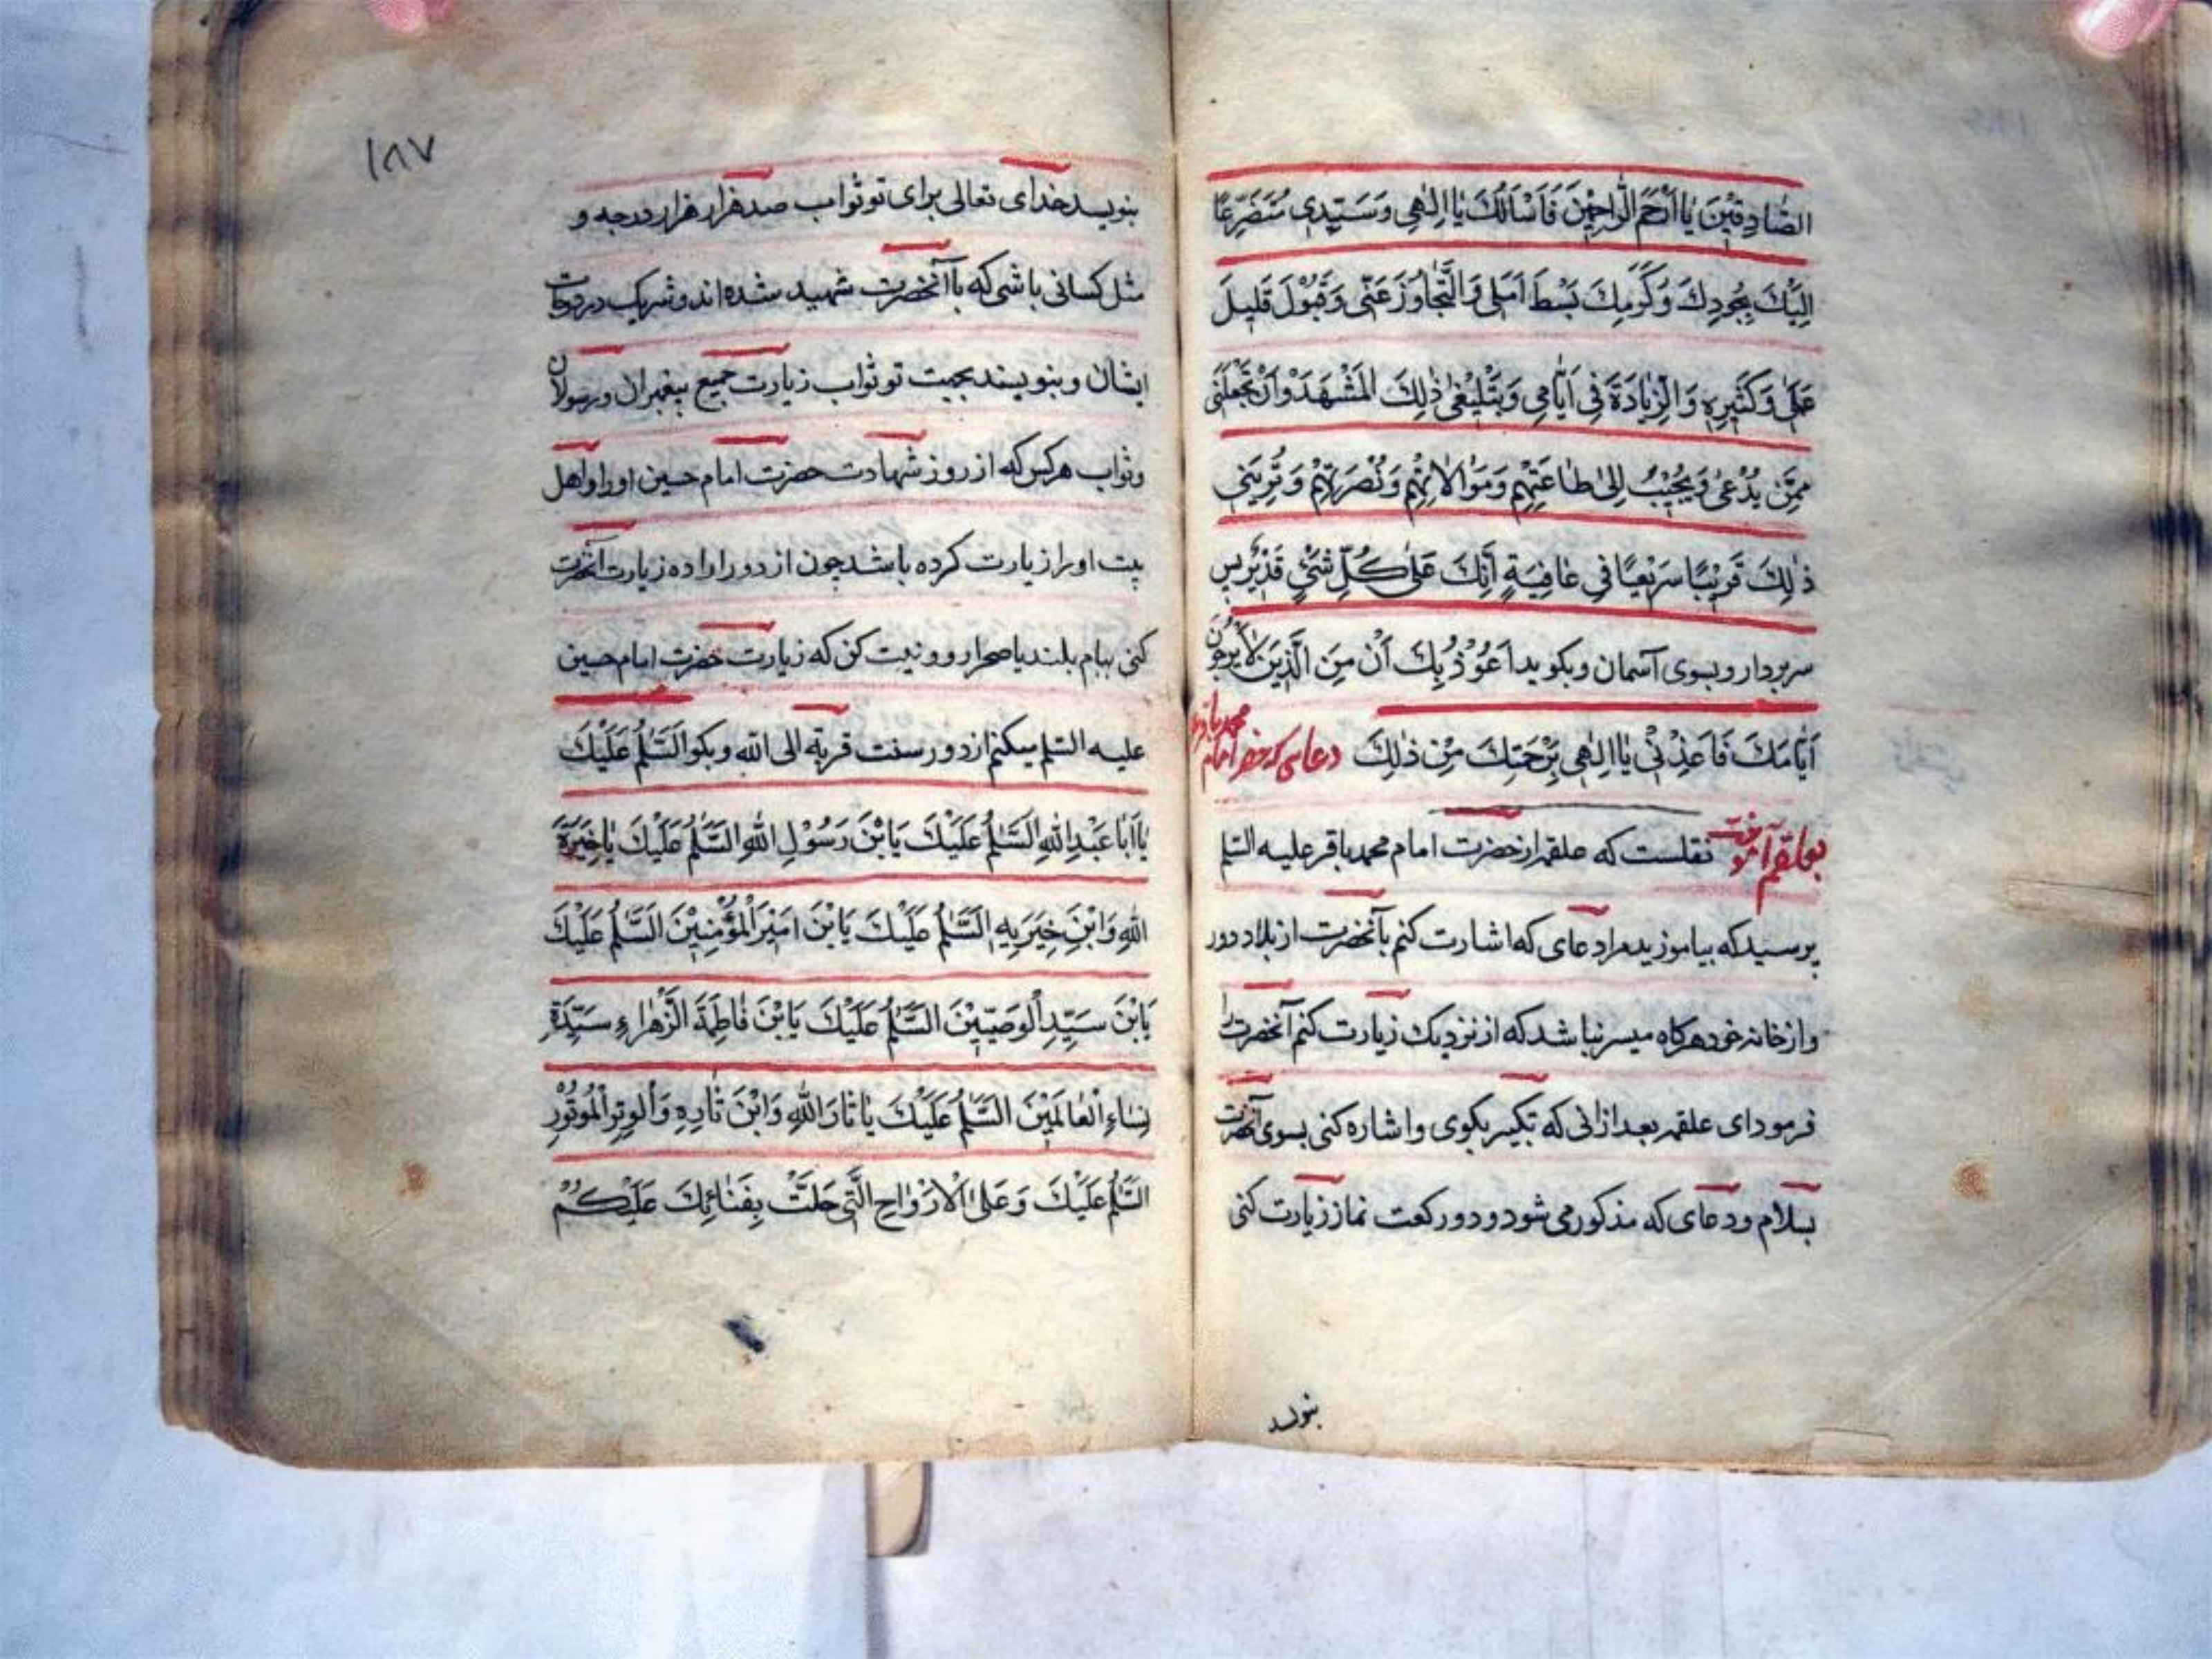 الصَّادِقِيْنَ يَا اَرْحَمَ الرَّاحِمِيْنَ فَاَسْاَلُكَ يَا اِلٰهِي وَسَيِّدِي مُتَضَرِّعًا
اِلَيْكَ بِجُودِكَ وَكَرَمِكَ بَسْطَ اَمَلِي وَالتَّجَاوُزَ عَنِّي وَقَبُوْلَ قَلِيلَ
عَمَلِي وَكَثِيرِهِ وَالزِّيَادَةَ فِي اَيَّامِي وَتَبْلِيْغِي ذٰلِكَ الْمَشْهَدَ وَاَنْ تَجْعَلَنِي
مِمَّنْ يُدْعٰى وَيُجِيْبُ اِلٰى طَاعَتِهِمْ وَمَوَالَاتِهِمْ وَنُصْرَتِهِمْ وَتُرِيَنِي
ذٰلِكَ قَرِيْبًا سَرِيْعًا فِي عَافِيَةٍ اِنَّكَ عَلٰى كُلِّ شَيْءٍ قَدِيْرٌ پس
سر بردار و بسوی آسمان و بکوید اَعُوْذُ بِكَ اَنْ مِنَ الَّذِيْنَ لَا يَرْجُوْنَ
اَيَّامَكَ فَاَعِذْنِي يَا اِلٰهِي بِرَحْمَتِكَ مِنْ ذٰلِكَ دعایی که حضر امام محمد باقر
بعلقمه آموخت نقلست که علقمه از حضرت امام محمد باقر علیه السلم
پرسید که بیاموزید مرا دعای که اشارت کنم بآنحضرت از بلاد دور
و از خانه خود هرکاه میسر نباشد که از نزدیک زیارت کنم آنحضرت را
فرمود ای علقمه بعد از انی که تکبیر بکوی و اشاره کنی بسوی آنحضرت
بسلام و دعای که مذکور می شود و دو رکعت نماز زیارت کنی
بنویسد
١٨٧
بنویسد خدای تعالی برای تو ثواب صد هزار هزار درجه و
مثل کسانی باشی که با آنحضرت شهید شده اند و شریک در درجات
ایشان و بنویسند بجهت تو ثواب زیارت جمیع پیغمبران و رسولان
و ثواب هرکس که از روز شهادت حضرت امام حسین او را و اهل
بیت او را زیارت کرده باشد چون از دور اراده زیارت آنحضرت
کنی ببام بلند یا صحرا رو و نیت کن که زیارت حضرت امام حسین
علیه السلم میکنم از دور سنت قربة الی الله و بکو اَلسَّلٰمُ عَلَيْكَ
يَا اَبَا عَبْدِ اللهِ اَلسَّلٰمُ عَلَيْكَ يَا بْنَ رَسُوْلِ اللهِ اَلسَّلٰمُ عَلَيْكَ يَا خِيَرَةَ
اللهِ وَابْنَ خِيَرَتِهِ اَلسَّلٰمُ عَلَيْكَ يَا بْنَ اَمِيْرِ الْمُؤْمِنِيْنَ اَلسَّلٰمُ عَلَيْكَ
يَا بْنَ سَيِّدِ الْوَصِيِّيْنَ اَلسَّلٰمُ عَلَيْكَ يَا بْنَ فَاطِمَةَ الزَّهْرَاءِ سَيِّدَةِ
نِسَاءِ الْعَالَمِيْنَ اَلسَّلٰمُ عَلَيْكَ يَا ثَارَ اللهِ وَابْنَ ثَارِهِ وَالْوِتْرَ الْمَوْتُوْرَ
اَلسَّلٰمُ عَلَيْكَ وَعَلَى الْاَرْوَاحِ الَّتِي حَلَّتْ بِفِنَائِكَ عَلَيْكُمْ